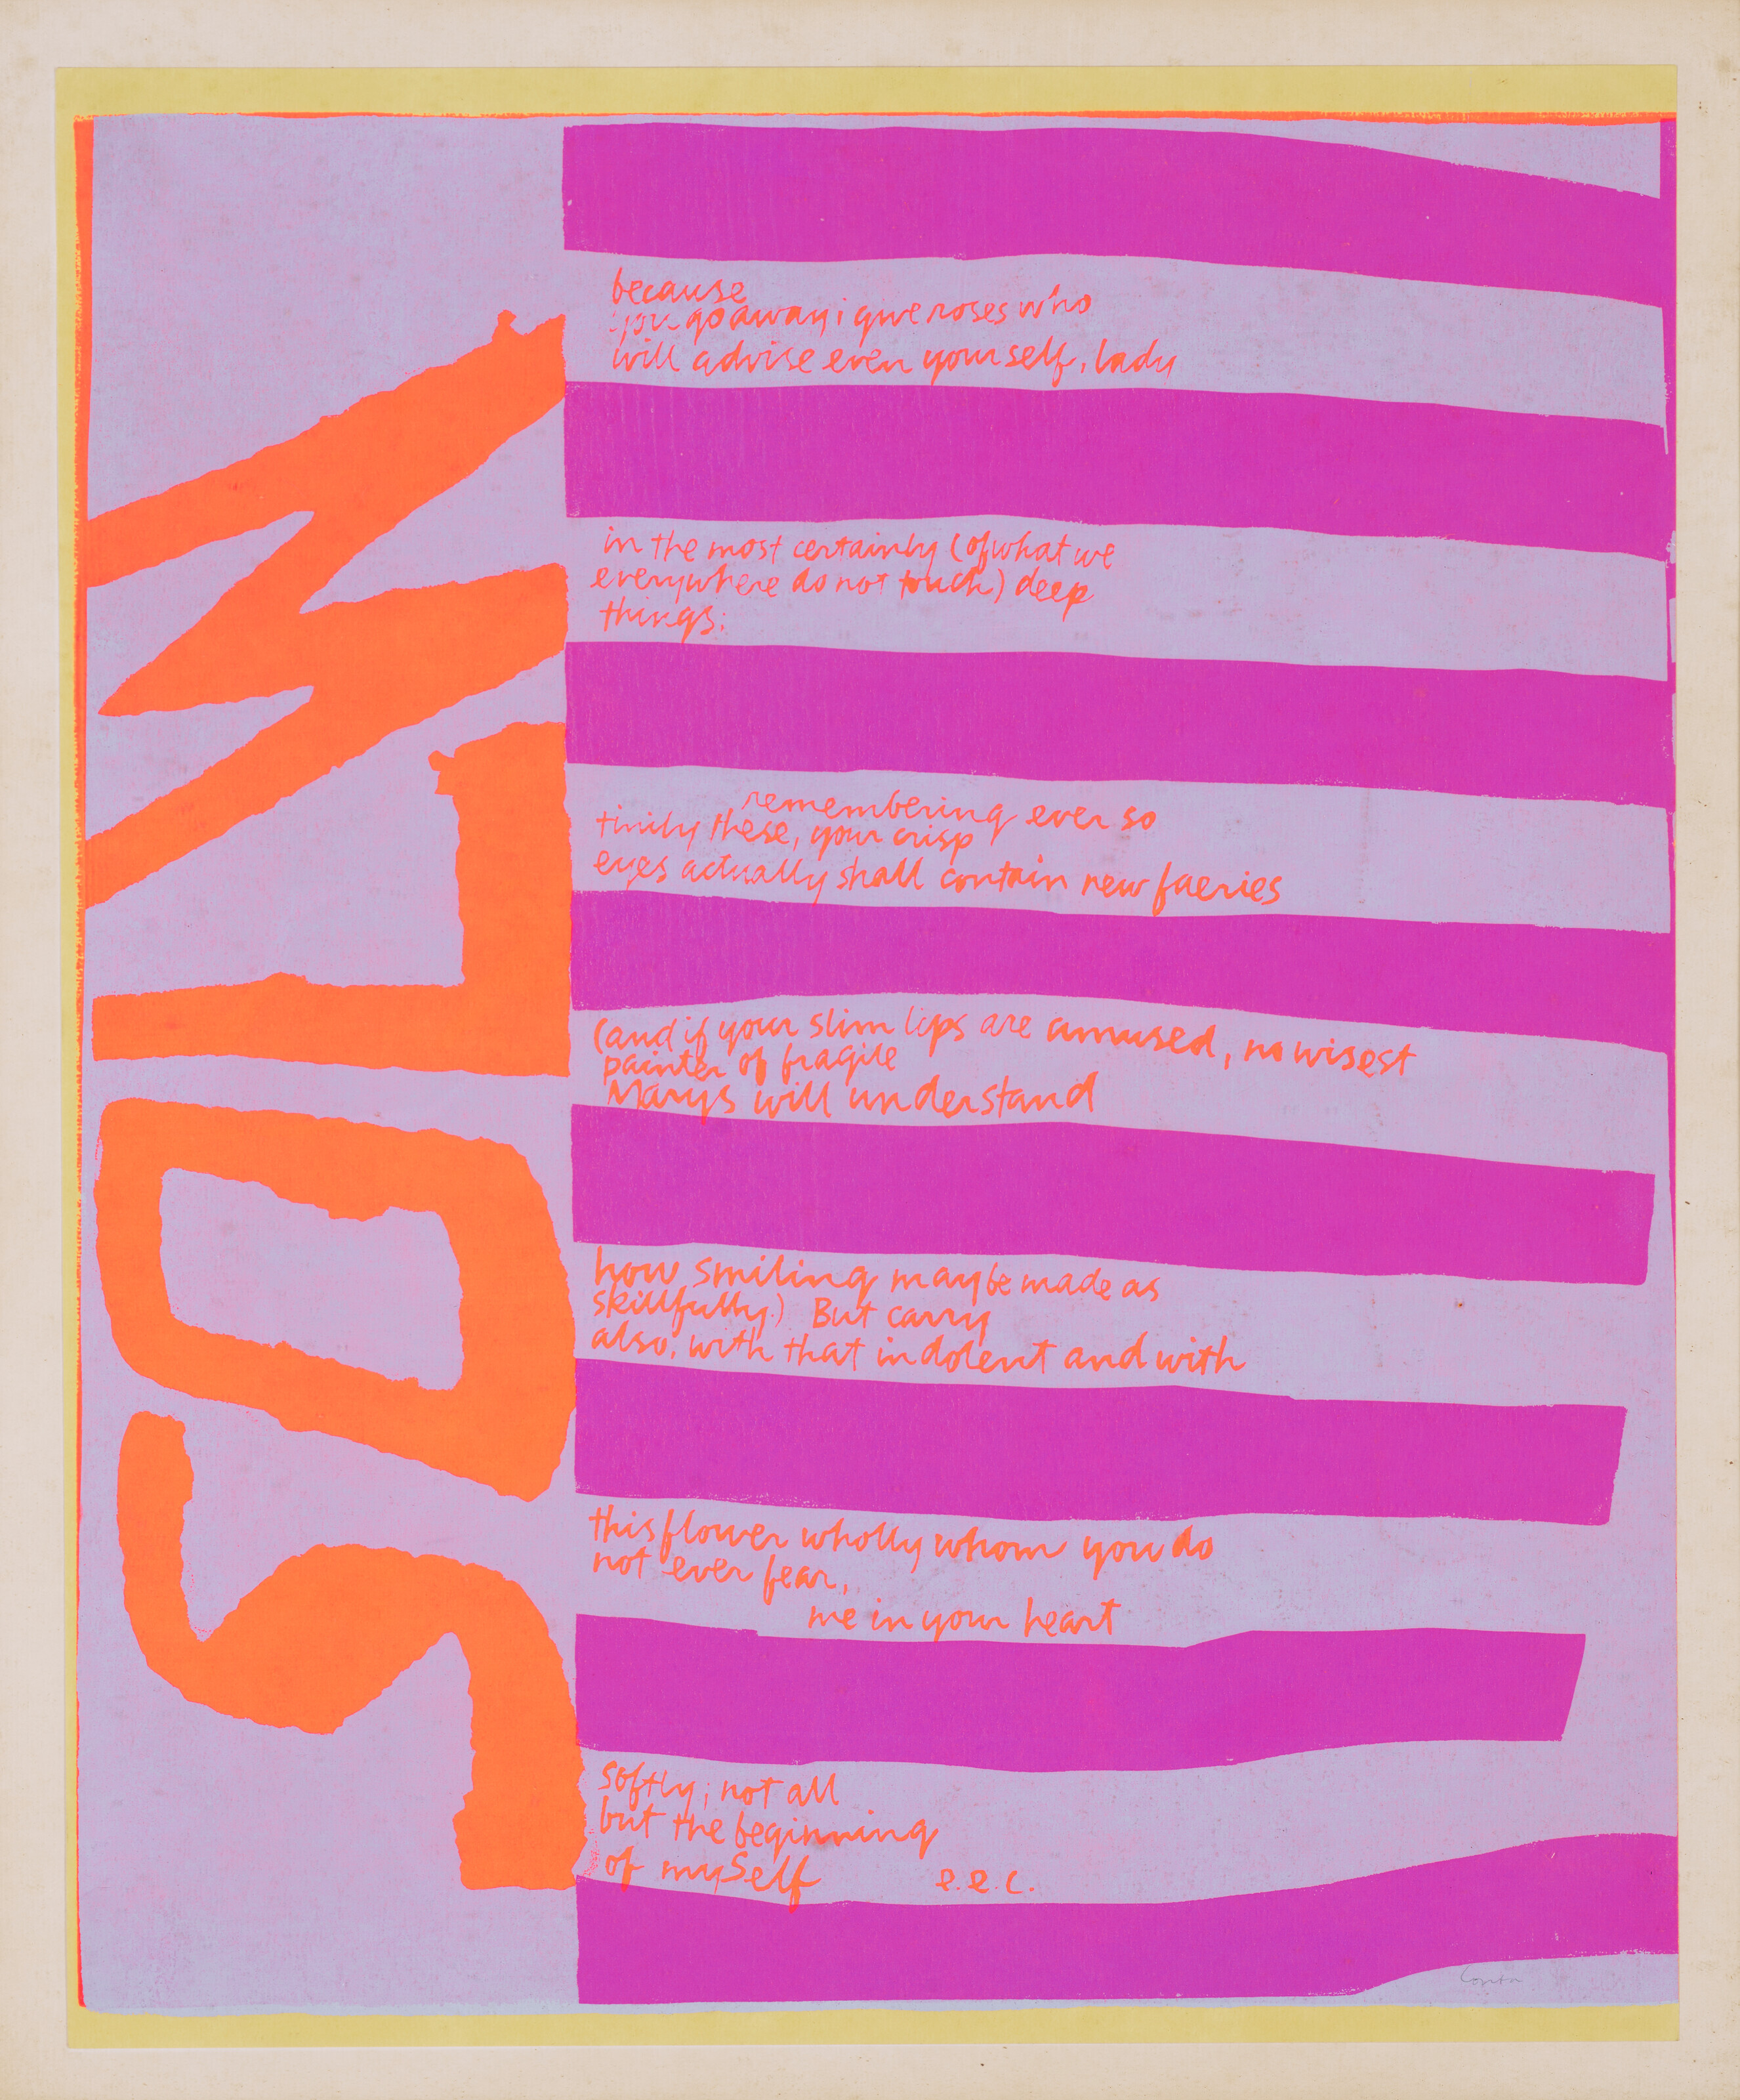 SOLW
because
you go away i give roses who
will advise even yourself, lady
in the most certainly (of what we
everywhere do not touch) deep
things;
remembering ever so
tinily these, your crisp
eyes actually shall contain new faeries
(and if your slim lips are amused, no wisest
painter of fragile
Marys will understand
how smiling may be made as
skillfully.) But carry
also, with that indolent and with
this flower wholly whom you do
not ever fear,
me in your heart
softly; not all
but the beginning
of mySelf e.e.c.
Corita